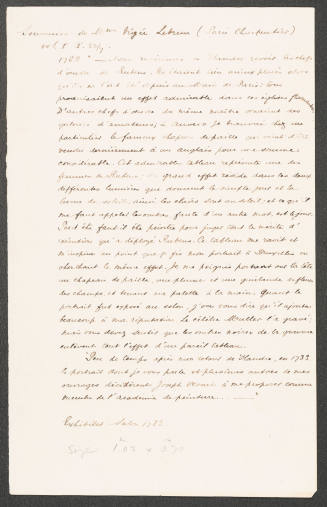 Souvenirs de Mme Vigée Lebrun (Paris Charpentier)
vol. I. p.
1782 "Nous retournâmes en Flandre revoir les chefs
d'œuvre de Rubens. Ils étaient bien mieux placés alors
qu'ils ne l'ont été depuis au Musée de Paris: tous
produisaient un effet admirable dans ces églises flamandes.
D'autres chefs d'œuvre du même maître ornaient des
galeries d'amateurs; à Anvers je trouvai chez un
particulier le fameux chapeau de paille qui vient d'être
vendu dernièrement à un Anglais pour une somme
considérable. Cet admirable tableau représente une des
femmes de Rubens; son grand effet réside dans les deux
différentes lumières que donnent le simple jour et la
lueur du soleil, ainsi les clairs sont au soleil; et ce qu'il
me faut appeler les ombres, faute d'un autre mot, est le jour.
Peut être faut il être peintre pour juger tout le mérite d'
exécution qu'a déployé Rubens. Ce tableau me ravit et
m'inspira au point que je fis mon portrait à Bruxelles en
cherchant le même effet. Je me peignis portant sur la tête
un chapeau de paille, une plume et une guirlande de fleurs
des champs, et tenant ma palette à la main. Quand le
portrait fut exposé au salon j'ose vous dire qu'il ajouta
beaucoup à ma réputation. Le célèbre Muller l'a gravé;
mais vous devez sentir que les ombres noires de la gravure
enlèvent tout l'effet d'un pareil tableau.
"Peu de temps après mon retour de Flandre, en 1783
le portrait dont je vous parle et plusieurs autres de mes
ouvrages décidèrent Joseph Vernet à me proposer comme
membre de l'académie de peinture.
Exhibited Salon 1783